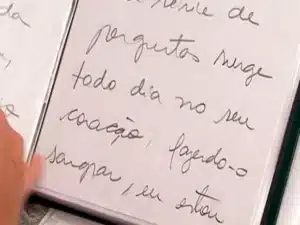 da
série de
perguntas surge
todo dia no seu
coração, fazendo-o
sangrar, eu estou